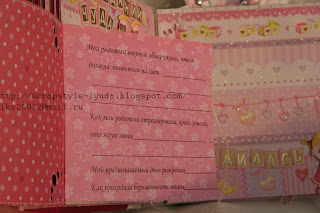 Мои родители впервые обнаружили, что я
должна появиться на свет
http://scrapstyle-lyuda.blogspot.com/
Как мои родители отреагировали, когда узнали,
что ждут меня
Мой предполагаемый день рождения
Как проходила беременность мамы